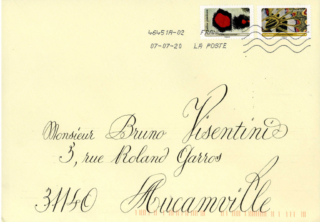 46451A-02 FRANCE
07-07-20 LA POSTE
Monsieur Bruno Visentini
3, rue Roland Garros
31140 Aucamville